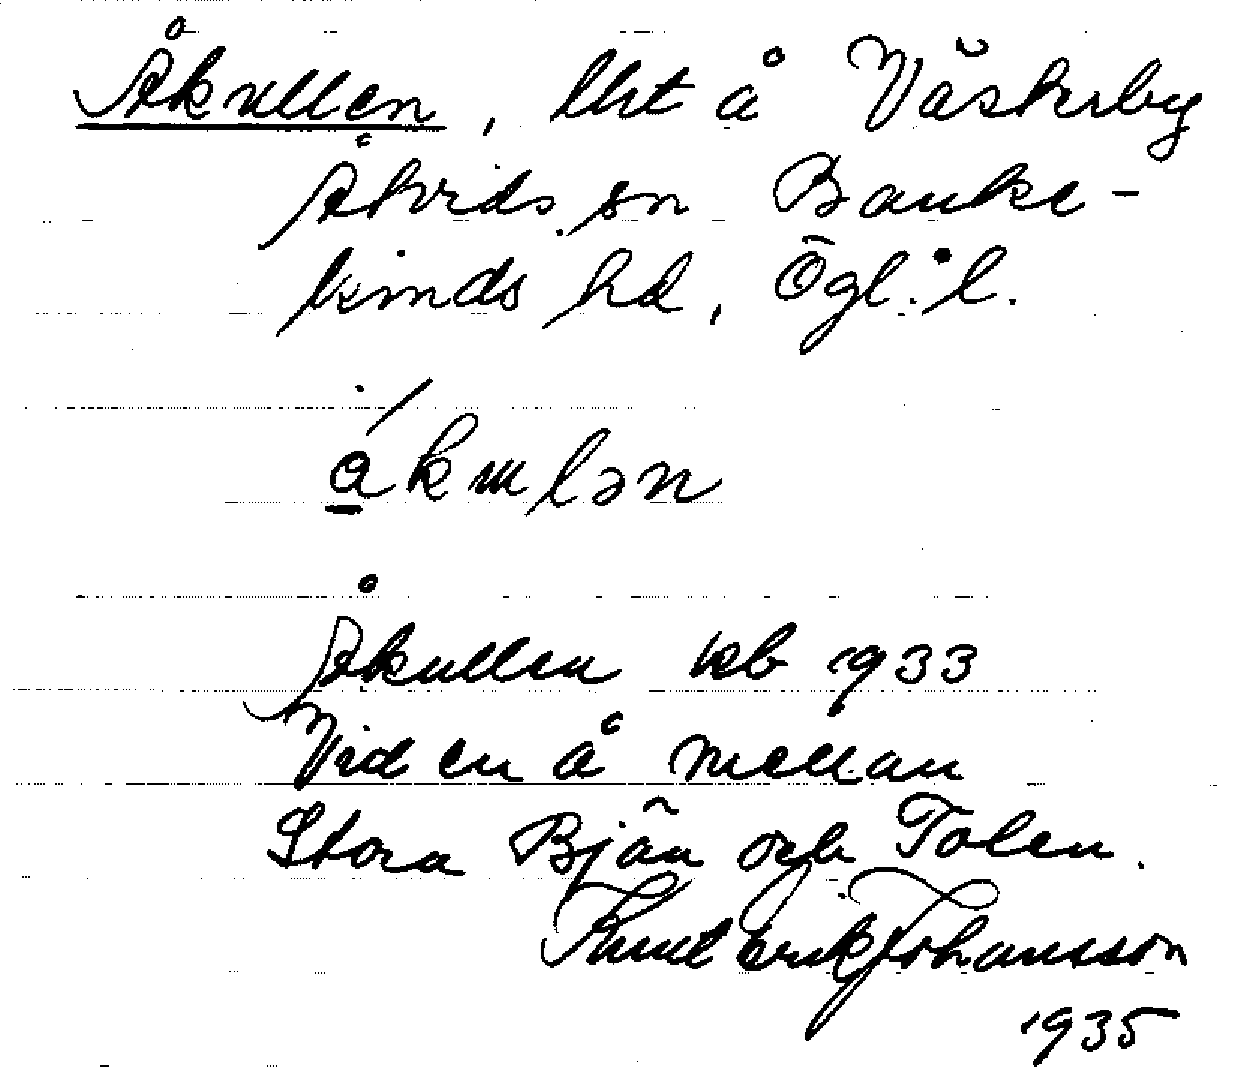 Åkullen, lht å Västerby
Åtvids sn Banke-
kinds hd, Ögl. l.
åkɯlən
Åkullen kb 1933
Vid en å mellan
Stora Bjän och Tolen.
Knut Erik Johansson
1935